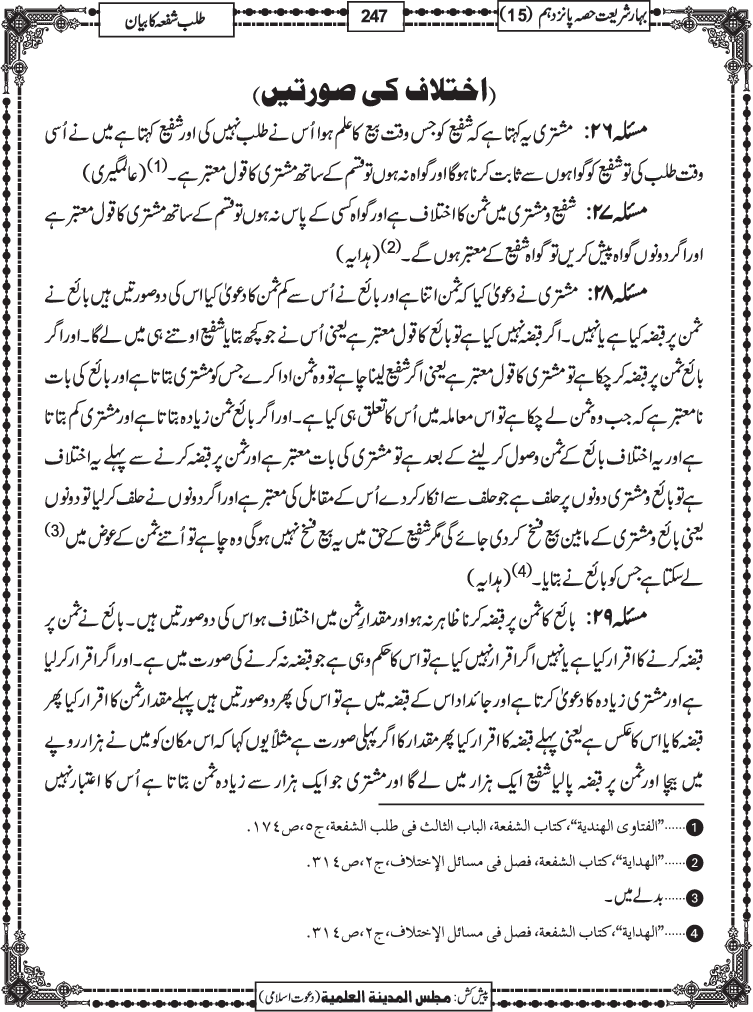 بہارِ شریعت حصہ پانزدہم (15)
247
طلب شفعہ کا بیان
(اختلاف کی صورتیں)
مسئلہ ۲۶: مشتری یہ کہتا ہے کہ شفیع کو جس وقت بیع کا علم ہوا اُس نے طلب نہیں کی اور شفیع کہتا ہے میں نے اُسی
وقت طلب کی تو شفیع کو گواہوں سے ثابت کرنا ہوگا اور گواہ نہ ہوں تو قسم کے ساتھ مشتری کا قول معتبر ہے۔(1) (عالمگیری)
مسئلہ ۲۷: شفیع و مشتری میں ثمن کا اختلاف ہے اور گواہ کسی کے پاس نہ ہوں تو قسم کے ساتھ مشتری کا قول معتبر ہے
اور اگر دونوں گواہ پیش کریں تو گواہ شفیع کے معتبر ہوں گے۔(2) (ہدایہ)
مسئلہ ۲۸: مشتری نے دعویٰ کیا کہ ثمن اتنا ہے اور بائع نے اُس سے کم ثمن کا دعویٰ کیا اس کی دو صورتیں ہیں بائع نے
ثمن پر قبضہ کیا ہے یا نہیں۔ اگر قبضہ نہیں کیا ہے تو بائع کا قول معتبر ہے یعنی اُس نے جو کچھ بتایا شفیع اوتنے ہی میں لے گا۔ اور اگر
بائع ثمن پر قبضہ کر چکا ہے تو مشتری کا قول معتبر ہے یعنی اگر شفیع لینا چاہے تو وہ ثمن ادا کرے جس کو مشتری بتاتا ہے اور بائع کی بات
نا معتبر ہے کہ جب وہ ثمن لے چکا ہے تو اس معاملہ میں اُس کا تعلق ہی کیا ہے۔ اور اگر بائع ثمن زیادہ بتاتا ہے اور مشتری کم بتاتا
ہے اور یہ اختلاف بائع کے ثمن وصول کر لینے کے بعد ہے تو مشتری کی بات معتبر ہے اور ثمن پر قبضہ کرنے سے پہلے یہ اختلاف
ہے تو بائع و مشتری دونوں پر حلف ہے جو حلف سے انکار کر دے اُس کے مقابل کی معتبر ہے اور اگر دونوں نے حلف کر لیا تو دونوں
یعنی بائع و مشتری کے مابین بیع فسخ کر دی جائے گی مگر شفیع کے حق میں یہ بیع فسخ نہیں ہوگی وہ چاہے تو اُتنے ثمن کے عوض میں(3)
لے سکتا ہے جس کو بائع نے بتایا۔(4) (ہدایہ)
مسئلہ ۲۹: بائع کا ثمن پر قبضہ کرنا ظاہر نہ ہو اور مقدارِ ثمن میں اختلاف ہو اس کی دو صورتیں ہیں۔ بائع نے ثمن پر
قبضہ کرنے کا اقرار کیا ہے یا نہیں اگر اقرار نہیں کیا ہے تو اس کا حکم وہی ہے جو قبضہ نہ کرنے کی صورت میں ہے۔ اور اگر اقرار کر لیا
ہے اور مشتری زیادہ کا دعویٰ کرتا ہے اور جائداد اس کے قبضہ میں ہے تو اس کی پھر دو صورتیں ہیں پہلے مقدارِ ثمن کا اقرار کیا پھر
قبضہ کا یا اس کا عکس ہے یعنی پہلے قبضہ کا اقرار کیا پھر مقدار کا اگر پہلی صورت ہے مثلاً یوں کہا کہ اس مکان کو میں نے ہزار روپے
میں بیچا اور ثمن پر قبضہ پالیا شفیع ایک ہزار میں لے گا اور مشتری جو ایک ہزار سے زیادہ ثمن بتاتا ہے اُس کا اعتبار نہیں
1 ......"الفتاوی الھندیۃ"، کتاب الشفعۃ، الباب الثالث فی طلب الشفعۃ، ج٥، ص١٧٤.
2 ......"الھدایۃ"، کتاب الشفعۃ، فصل فی مسائل الإختلاف، ج٢، ص٣١٤.
3 ......بدلے میں۔
4 ......"الھدایۃ"، کتاب الشفعۃ، فصل فی مسائل الإختلاف، ج٢، ص٣١٤.
پیش کش: مجلس المدینة العلمیة (دعوتِ اسلامی)